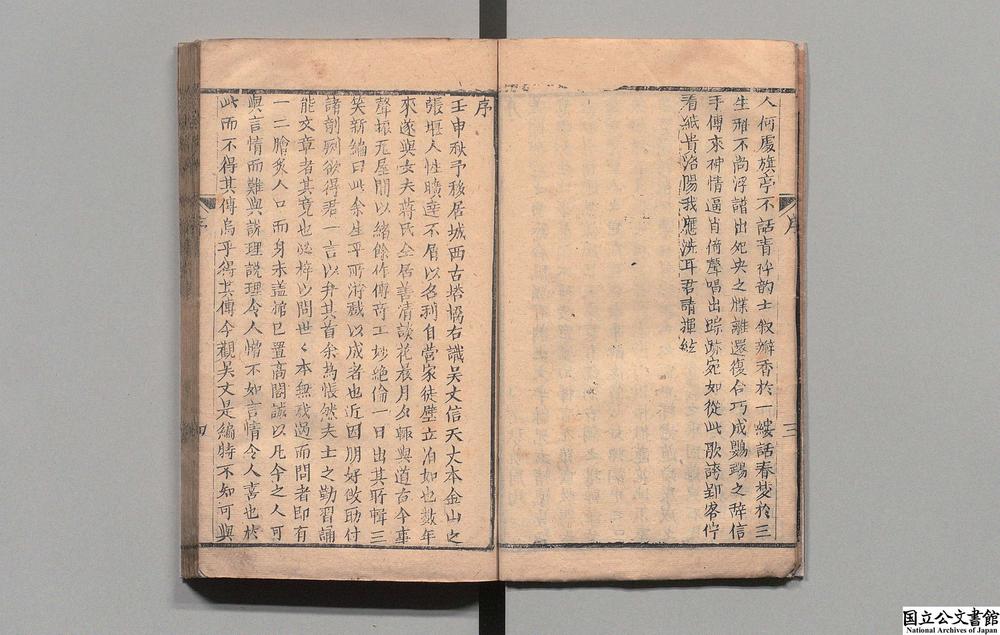 人何處旗亭不話青衫韵士叙瓣香於一縷話春夢於三
生雅不尚浮譜出死央之牒離還復合巧成鸚鵡之辞信
手傳來神情逼肖倚聲唱出踪跡宛如從此歌謗郢客佇
看紙貴洛陽我應洗耳君請揮絃
序
三
序
壬申秋予移居城西古塔塢右識吴文信天丈本金山之
張堰人性曠達不屑以名利自營家徒壁立泊如也数年
來遂與女夫蒋氏仝居善清談花晨月夕輒與道古今事
聲振瓦屋間以緒餘作傳竒工妙絶倫一日出其所輯三
笑新編曰此余生平所游戲以成者也近因朋好敛助付
諸剞劂欲得君一言以弁其首余為悵然夫士之勤習誦
能文章者其竟也必梓以問世々本無我過而問者即有
一二膾炙人口而身未盖棺已置高閣誠以凡今之人可
與言情而難與説理説理令人憎不如言情令人喜也於
此而不得其傳烏乎得其傳今觀吴丈是編時不知可與
序
四
国立公文書館
National Archives of Japan